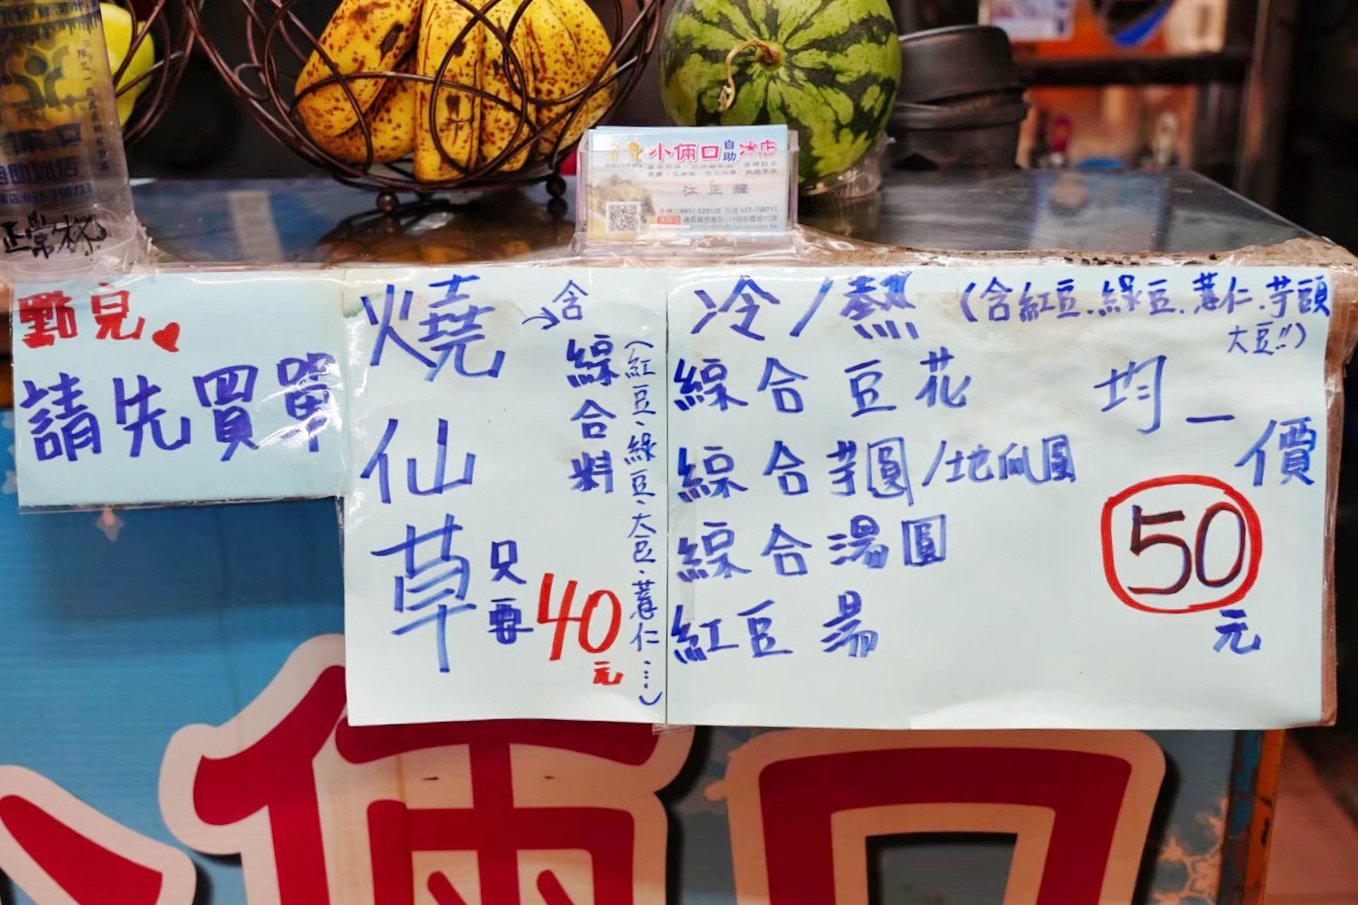 正常杯
小倆口自助冰店
江正輝
點完
請先買單
燒仙草
只要40元
含綜合料
(紅豆、綠豆、大豆、薏仁…)
冷/熱 (含紅豆.綠豆.薏仁.芋頭
大豆!!)
綜合豆花
綜合芋圓/地瓜圓
綜合湯圓
紅豆湯
均一價
50
元
小倆口